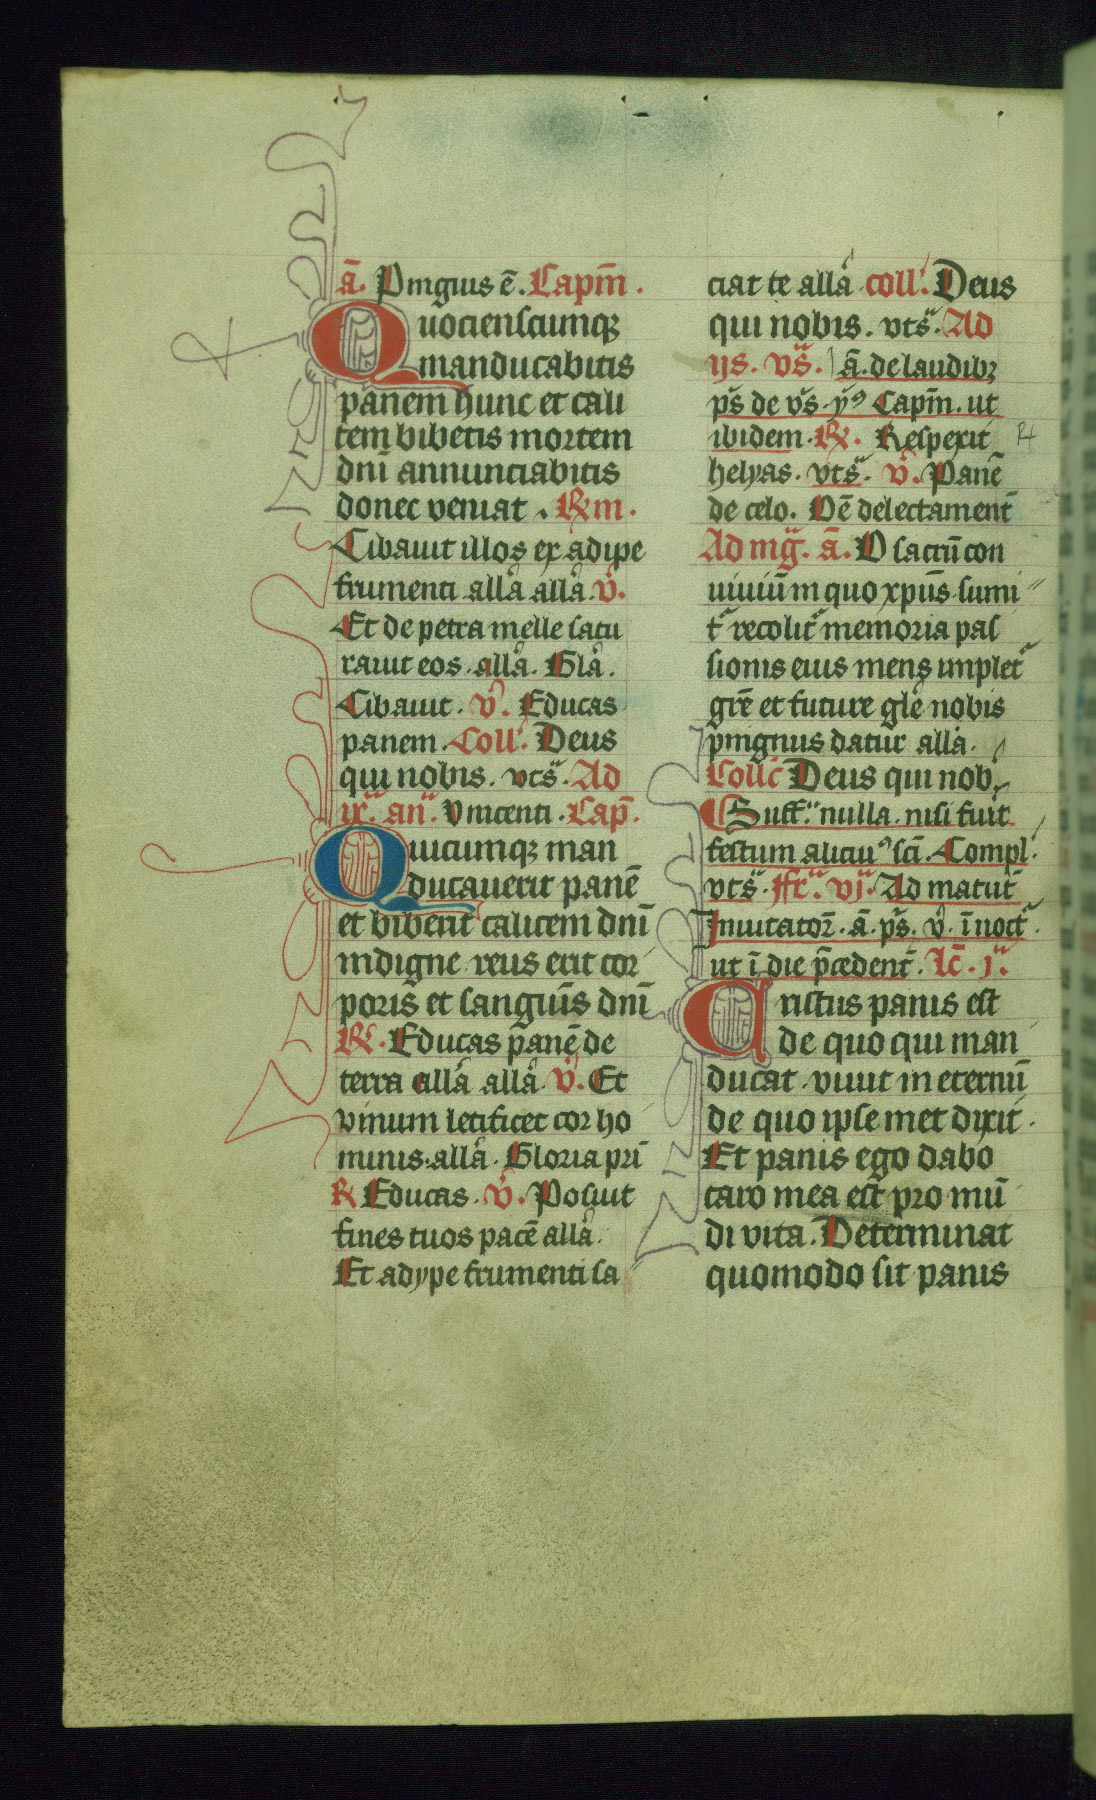 ā. Pingius ē. Capm̄.
Quociensciumqꝫ
manducabitis
panem hunc et cali
cem bibetis mortem
dnī annunciabitis
donec veniat. Rm.
Cibauit illos ex adipe
frumenti alla alla. v.
Et de petra melle satu
rauit eos. alla. Gla.
Cibauit. v. Educas
panem. Coll. Deus
qui nobis. vts. Ad
ix. an. Vincenti. Cap.
Quicumqꝫ man
ducauerit panē
et biberit calicem dnī
indigne reus erit cor
poris et sanguis̄ dnī
R. Educas panē de
terra alla alla. v. Et
vinum letificet cor ho
minis. alla. Gloria pri
R Educas. v. Posuit
fines tuos pacē alla.
Et adype frumenti sa
ciat te alla coll. Deus
qui nobis. vts. Ad
ijs. vs. ā. de laudibꝫ
ps de vs. Capm̄. ut
ibidem. R. Respexit
helyas. vts. v. Panē
de celo. Oē delectament̄
Ad mg. ā. O sacrū con
uiuiū in quo xpus sumi
t recolit memoria pas
sionis eius mens implet
grē et future glē nobis
pingnus datur alla.
Collc̄ Deus qui nob.
Suff. nulla. nisi fuit
festum alicui sci. Compl.
vts. ffr. vj. Ad matut̄
Inuitator̄. ā. ps. v. ī noct
ut ī die p̄cedent̄. Lc̄. j.
Cristus panis est
de quo qui man
ducat viuit in eternū
de quo ipse met dixit.
Et panis ego dabo
caro mea est pro mū
di vita. Determinat
quomodo sit panis